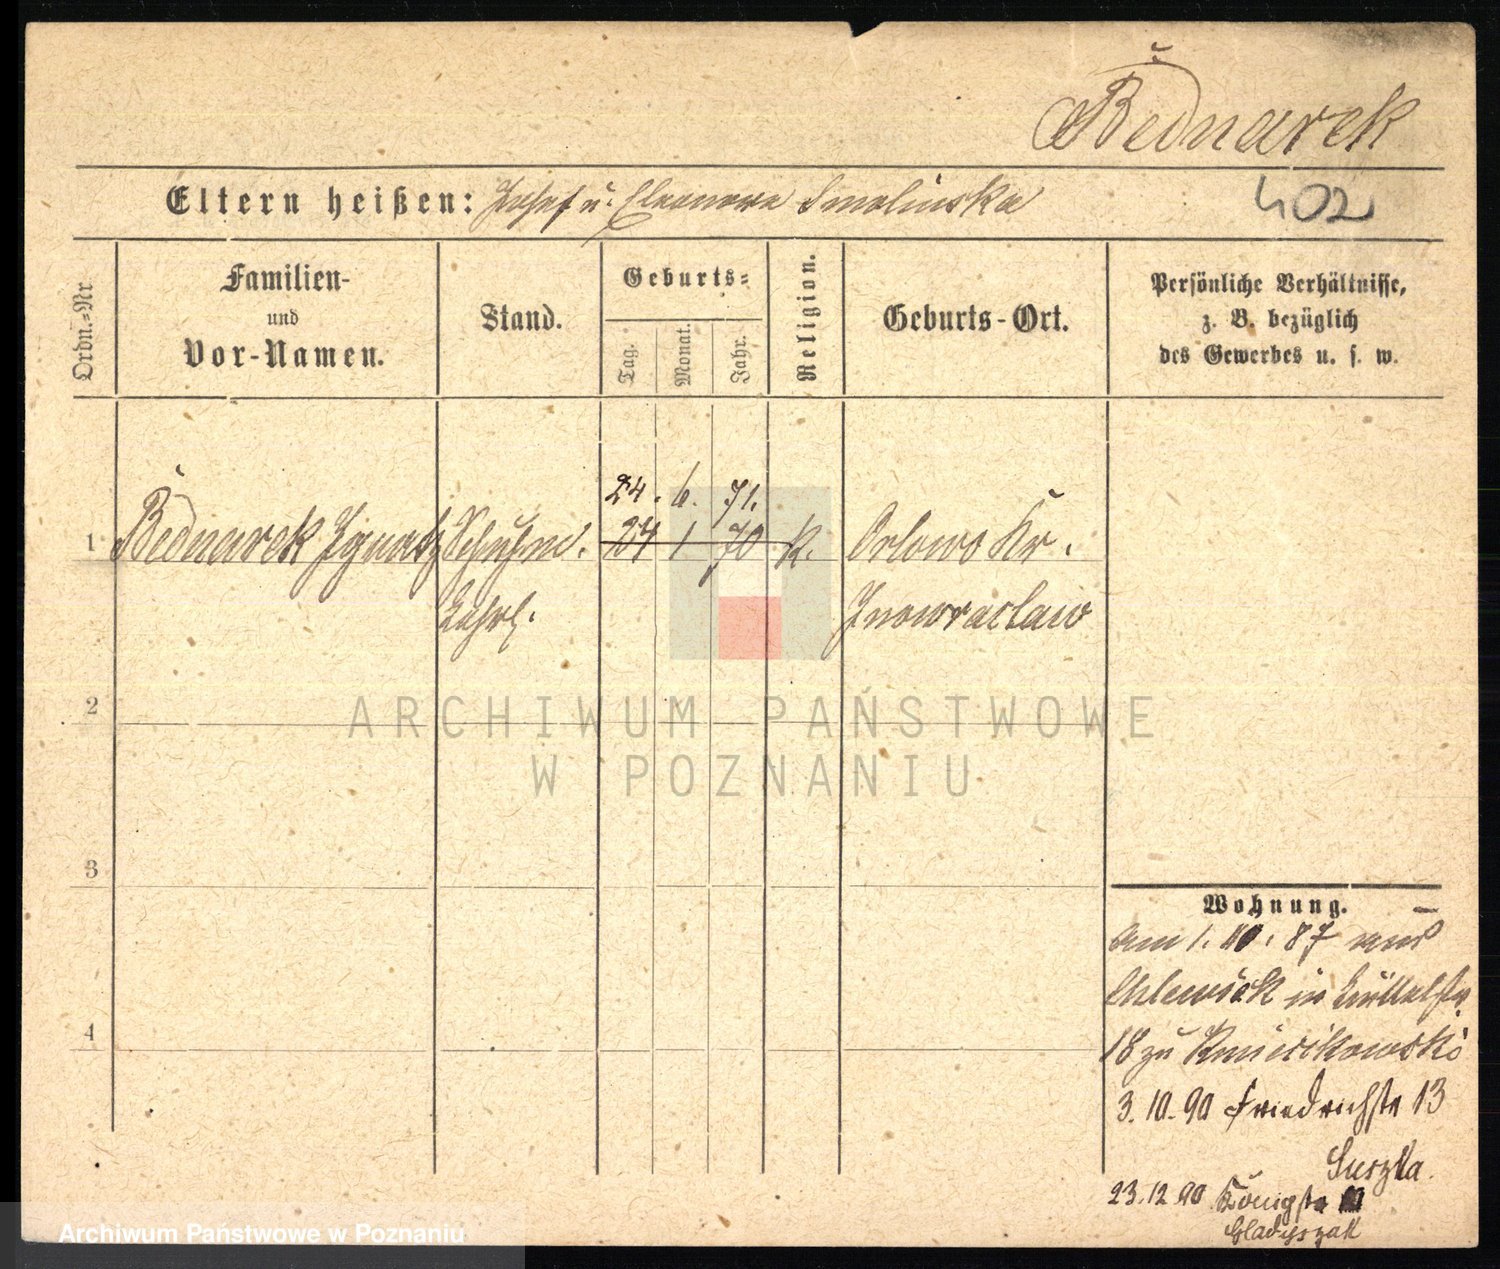 Bednarek
Eltern heißen: Josef u. Eleonora Smolinska
402
Ordn.-Nr
Familien-
und
Vor-Namen.
Stand.
Geburts-
Tag.
Monat.
Jahr.
Religion.
Geburts-Ort.
Persönliche Verhältnisse,
z. B. bezüglich
des Gewerbes u. s. w.
24. 6. 71.
1 Bednarek Ignatz Schuhm. 24 1 70 K. Orlowo Kr.
Lehrl. Inowraclaw
2
ARCHIWUM PAŃSTWOWE
W POZNANIU
3
Wohnung.
am 1. 10. 87 aus
in
18 zu
4
3. 10. 90 Friedrichstr 13
Suszka.
23. 12. 90 Königstr
Gladyszak
Archiwum Państwowe w Poznaniu